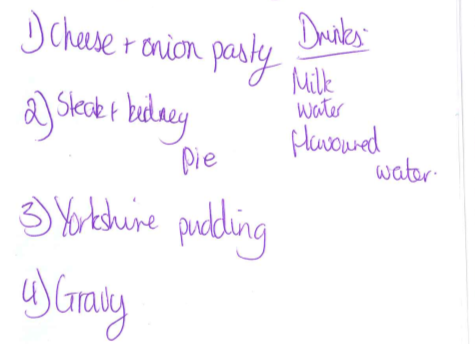 1) Cheese + onion pasty
2) Steak + kidney
pie
3) Yorkshire pudding
4) Gravy
Drinks:
Milk
water
flavoured
water.